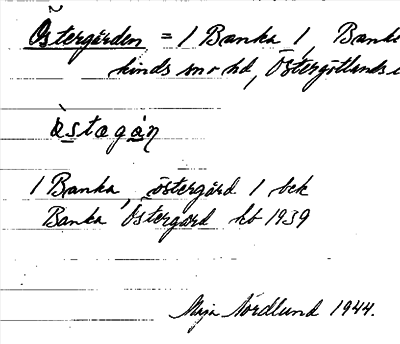 Östergården = 1 Banka 1, Banke
kinds snr hd, Östergötlands
östagån
1 Banka, östergård 1 bek
Banka Östergård kb 1939
Maja Nordlund 1944.